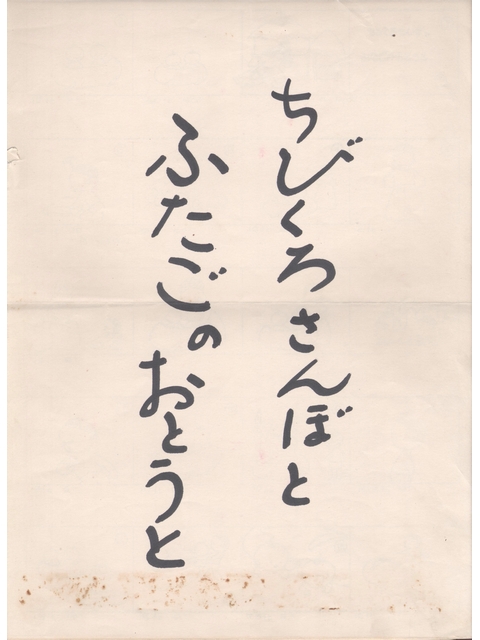 ちびくろさんぼと
ふたごのおとうと